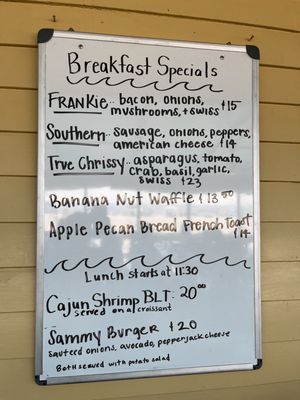 Breakfast Specials
FRANKie.. bacon, onions, $15
mushrooms, + swiss
Southern.. sausage, onions, peppers,
american cheese $14
True Chrissy.. asparagus, tomato,
crab, basil, garlic,
swiss $23
Banana Nut Waffle $13 50
Apple Pecan Bread French Toast
$14
Lunch starts at 11:30
Cajun Shrimp BLT: 20 00
served on a croissant
Sammy Burger $20
sauteed onions, avocado, pepperjack cheese
Both served with potato salad